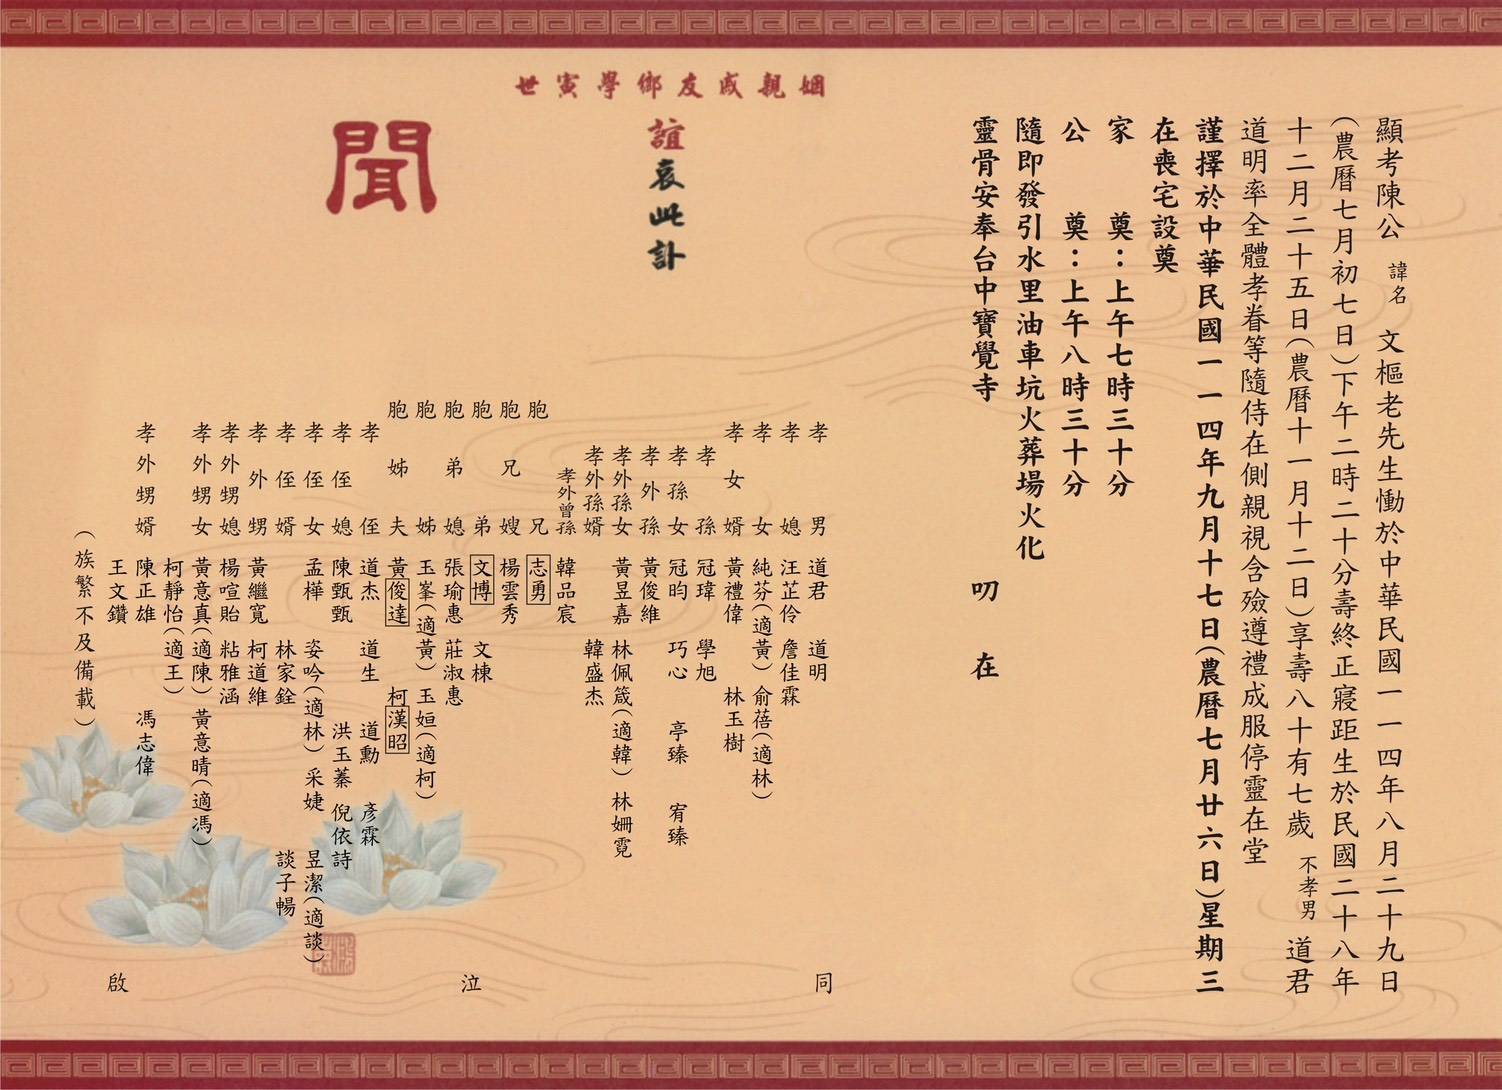 顯考陳公 諱名 文樞老先生慟於中華民國一一四年八月二十九日
(農曆七月初七日)下午二時二十分壽終正寢距生於民國二十八年
十二月二十五日(農曆十一月十二日)享壽八十有七歲 不孝男 道君
道明率全體孝眷等隨侍在側親視含殮遵禮成服停靈在堂
謹擇於中華民國一一四年九月十七日(農曆七月廿六日)星期三
在喪宅設奠
家 奠:上午七時三十分
公 奠:上午八時三十分
隨即發引水里油車坑火葬場火化
靈骨安奉台中寶覺寺 叨 在
姻親戚友鄉學寅世
誼哀此訃
聞
孝男 道君 道明
孝媳 汪芷伶 詹佳霖
孝女 純芬(適黃) 俞蓓(適林)
孝女婿 黃禮偉 林玉樹
孝孫 冠瑋 學旭
孝孫女 冠昀 巧心 亭臻 宥臻
孝外孫 黃俊維
孝外孫女 黃昱嘉 林佩箴(適韓) 林姍霓
孝外孫婿 韓盛杰
孝外曾孫 韓品宸
胞兄 志勇
胞兄嫂 楊雲秀
胞弟 文博 文棟
胞弟媳 張瑜惠 莊淑惠
胞姊 玉峯(適黃) 玉姮(適柯)
胞姊夫 黃俊達 柯漢昭
孝侄 道杰 道生 道勳 彥霖
孝侄媳 陳甄甄 洪玉蓁 倪依詩
孝侄女 孟樺 姿吟(適林) 采婕 昱潔(適談)
孝侄婿 林家銓 談子暢
孝外甥 黃繼寬 柯道維
孝外甥媳 楊喧貽 粘雅涵
孝外甥女 黃意真(適陳) 黃意晴(適馮)
柯靜怡(適王)
孝外甥婿 陳正雄 馮志偉
王文鑽
(族繁不及備載)
同 泣 啟